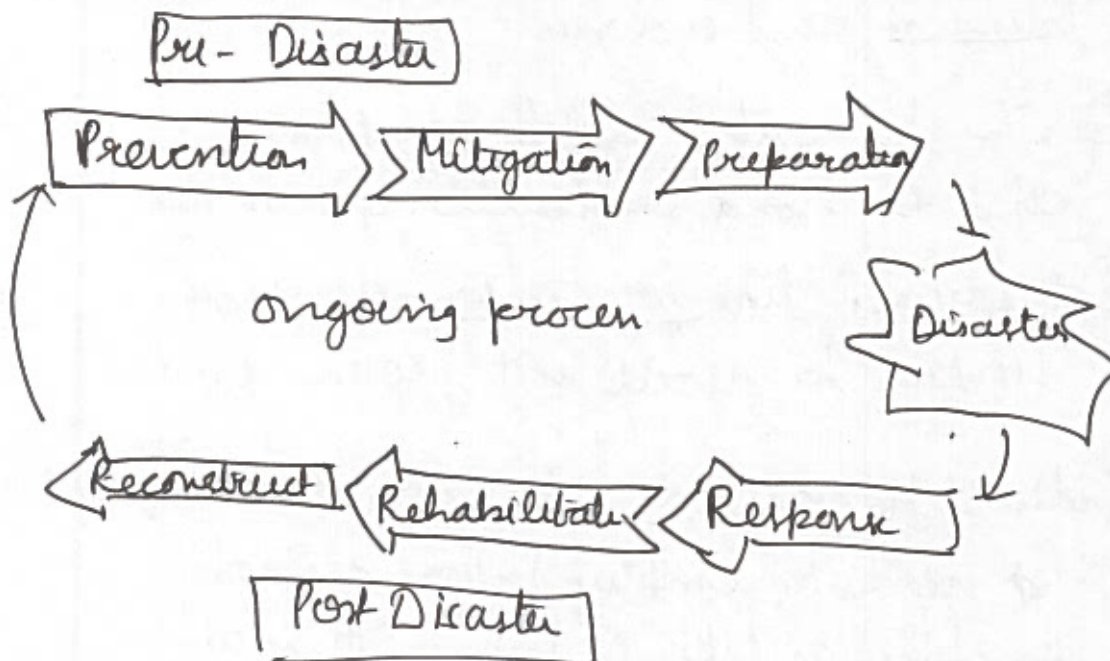 Pre- Disaster
Prevention Mitigation Preparation
Disaster
ongoing process
Reconstruct Rehabilitate Response
Post Disaster